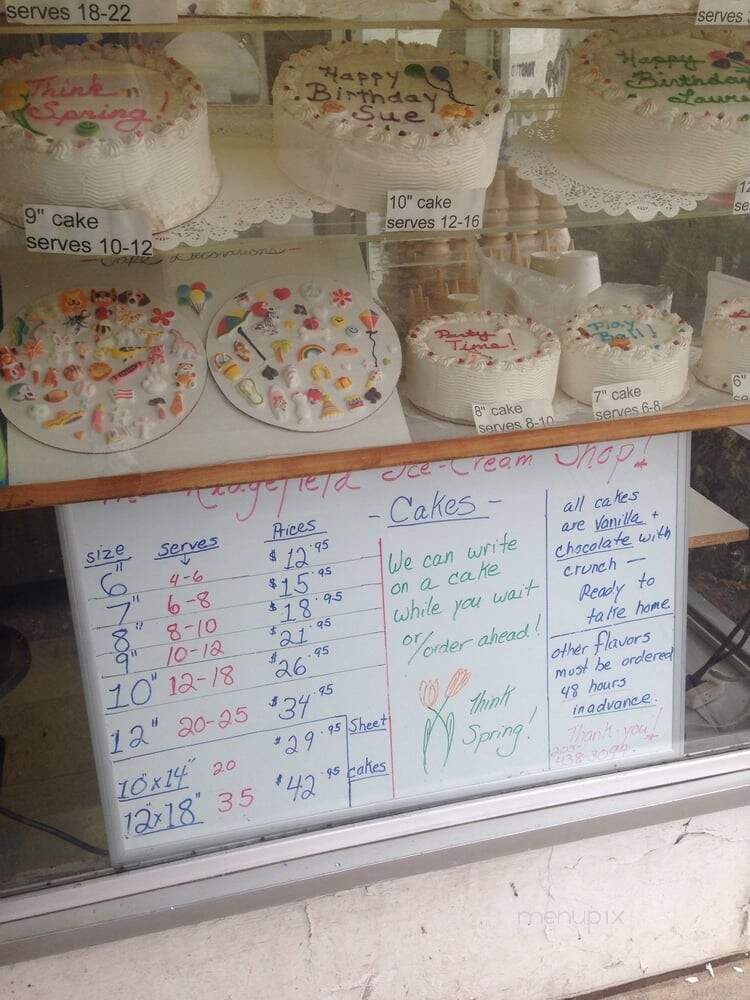 serves 18-22
serves
Think n
Spring!
Happy
Birthday
Sue
Happy
Birthday
Laure
9" cake
serves 10-12
10" cake
serves 12-16
Cake Decorations
Party
Time!
Play
Ball!
8" cake
serves 8-10
7" cake
serves 6-8
6"
Ridgefield Ice-Cream Shop!
size Serves Prices
6" 4-6 $12.95
7" 6-8 $15.95
8" 8-10 $18.95
9" 10-12 $21.95
10" 12-18 $26.95
12" 20-25 $34.95
10"x14" 20 $29.95 Sheet
12"x18" 35 $42.95 cakes
- Cakes -
We can write
on a cake
while you wait
or/order ahead!
Think
Spring!
all cakes
are Vanilla +
chocolate with
crunch —
Ready to
take home
other flavors
must be ordered
48 hours
in advance.
Thank you!
203-
438-3094
menupix